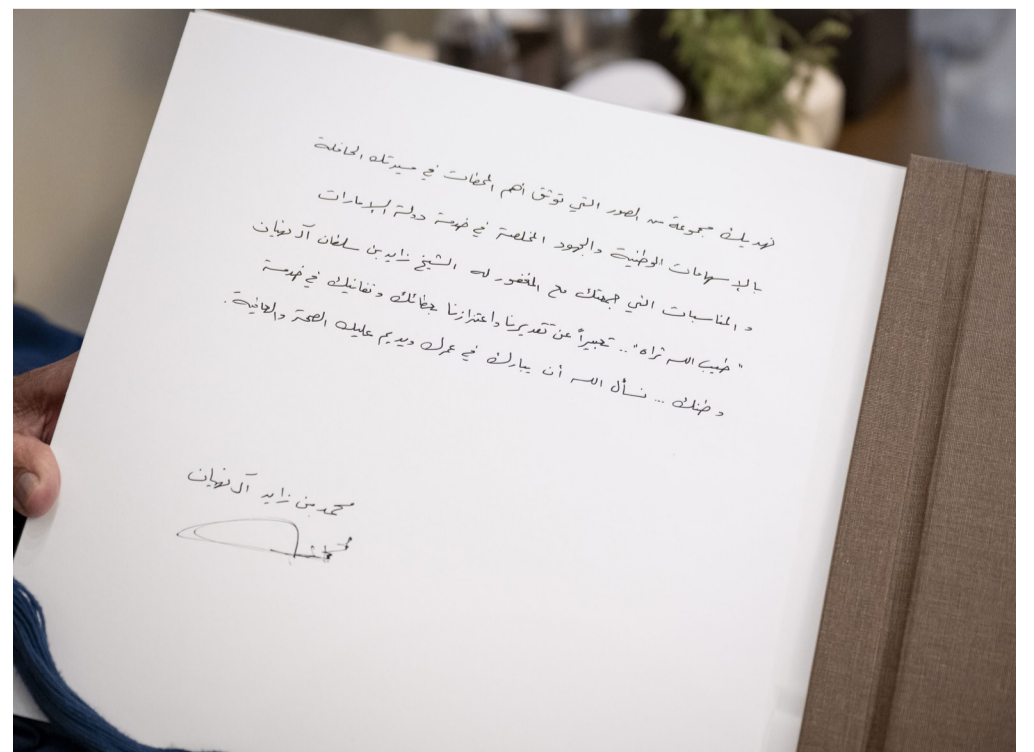 نهديك مجموعة من الصور التي توثق أهم المحطات في مسيرتك الحافلة
بالإسهامات الوطنية والجهود المخلصة في خدمة دولة الإمارات
و المناسبات التي جمعتك مع المغفور له الشيخ زايد بن سلطان آل نهيان
"طيب الله ثراه".. تعبيراً عن تقديرنا واعتزازنا بعطائك وتفانيك في خدمة
وطنك ... نسأل الله أن يبارك في عمرك ويديم عليك الصحة والعافية.
محمد بن زايد آل نهيان